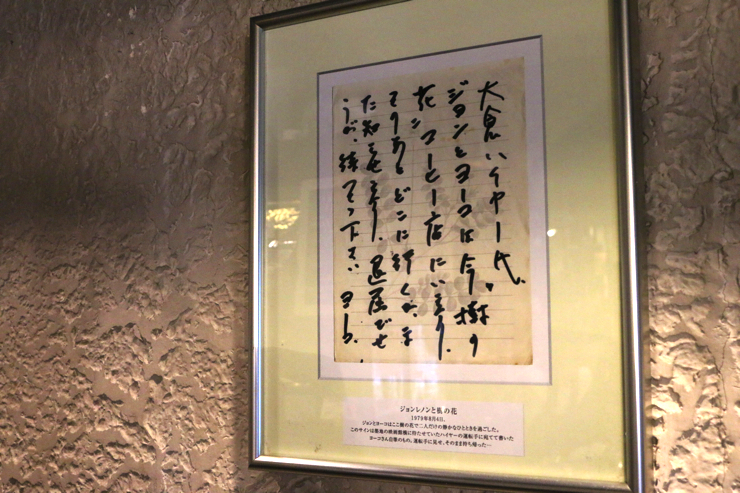 大倉ハイヤー氏、
ジョンとヨーコは今、樹の
花、コーヒー店にいます。
そのあとどこに行くか、ま
た知らせます。退屈でせ
うが、待てつ下さい
ジョンレノンと樹の花
1979年8月4日、
ジョンとヨーコはここ樹の花で二人だけの静かなひとときを過ごした。
このサインは に待たせていたハイヤーの運転手に宛てて書いた
ヨーコさん自筆のもの。運転手に見せ、そのまま持ち帰った…